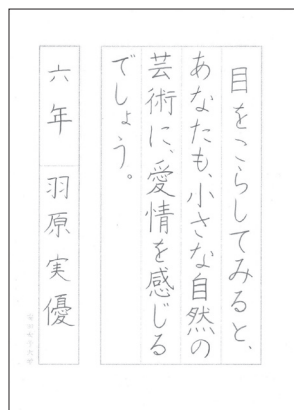 目をこらしてみると、
あなたも、小さな自然の
芸術に、愛情を感じる
でしょう。
六年 羽原実優